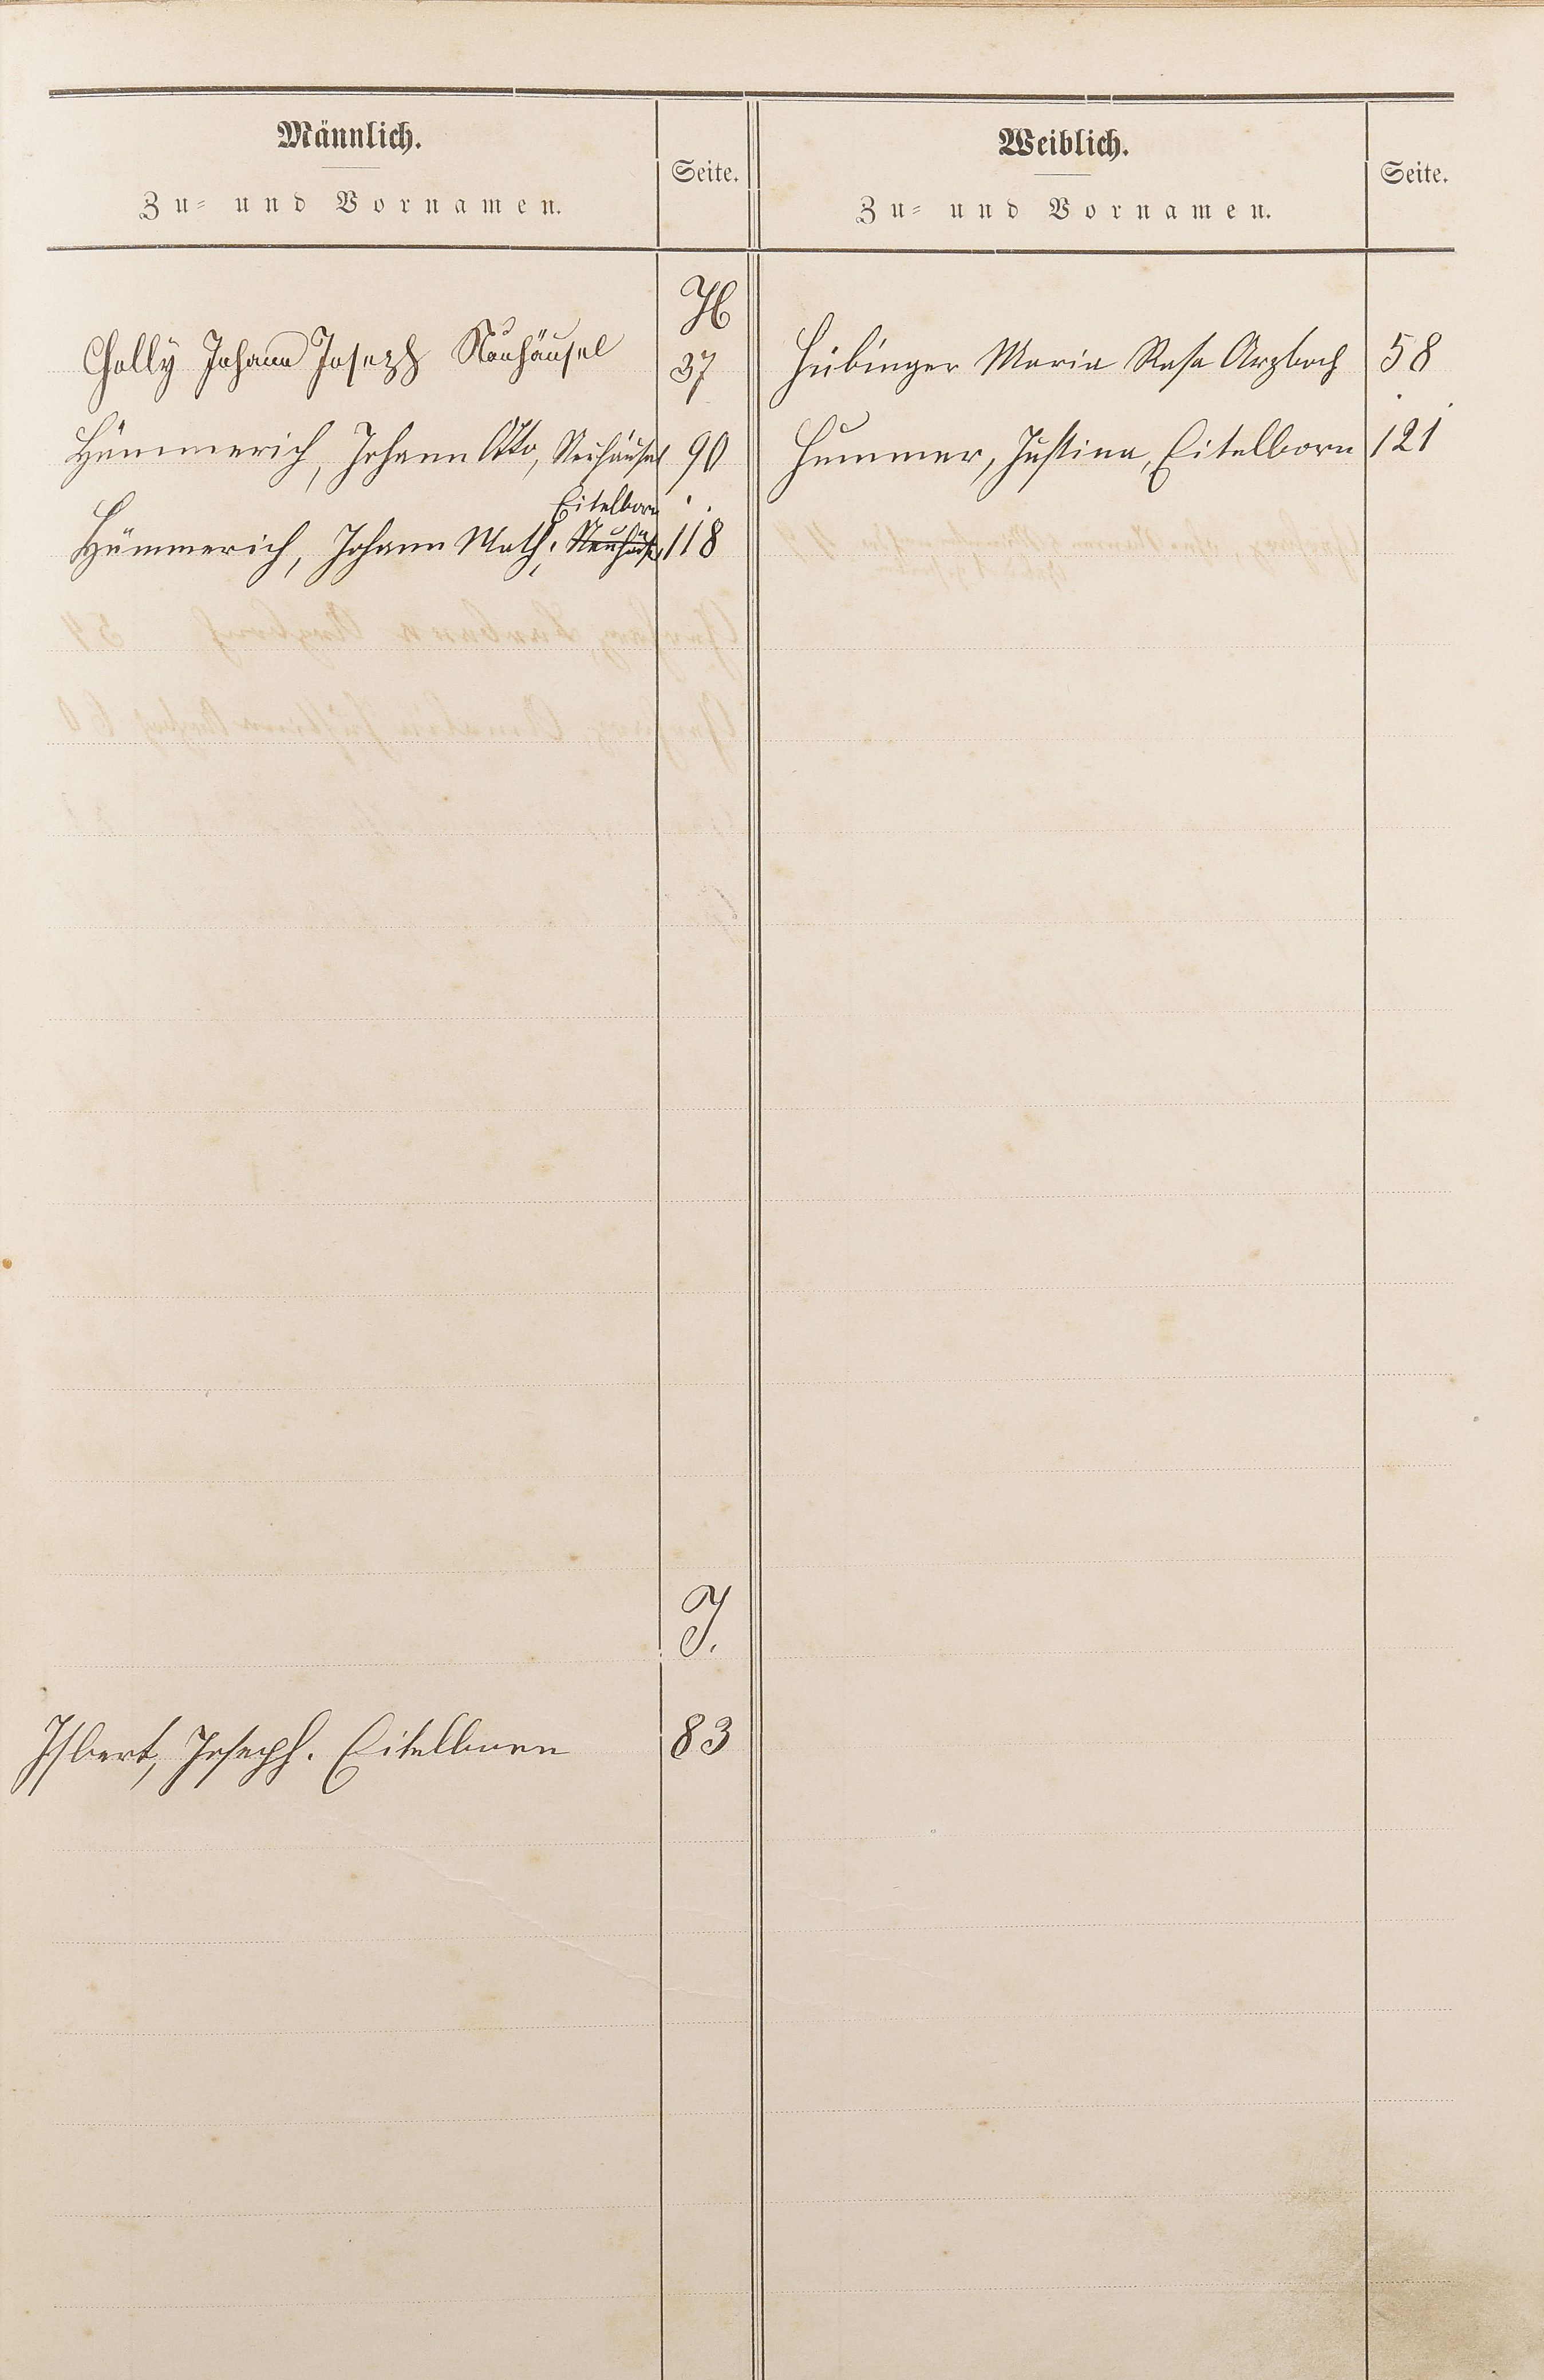 Männlich.
Zu- und Vornamen.
Seite.
Weiblich.
Zu- und Vornamen.
Seite.
H
Johann Joseph Neuhäusel 37
Hübinger Maria Rosa Arzbach 58
Hümmerich, Johann Otto, Neuhäusel 90
Hummer, Justina, Eitelborn 121
Eitelborn
Hümmerich, Johann Math; Neuhäusel 118
J.
Isbert, Joseph. Eitelborn 83